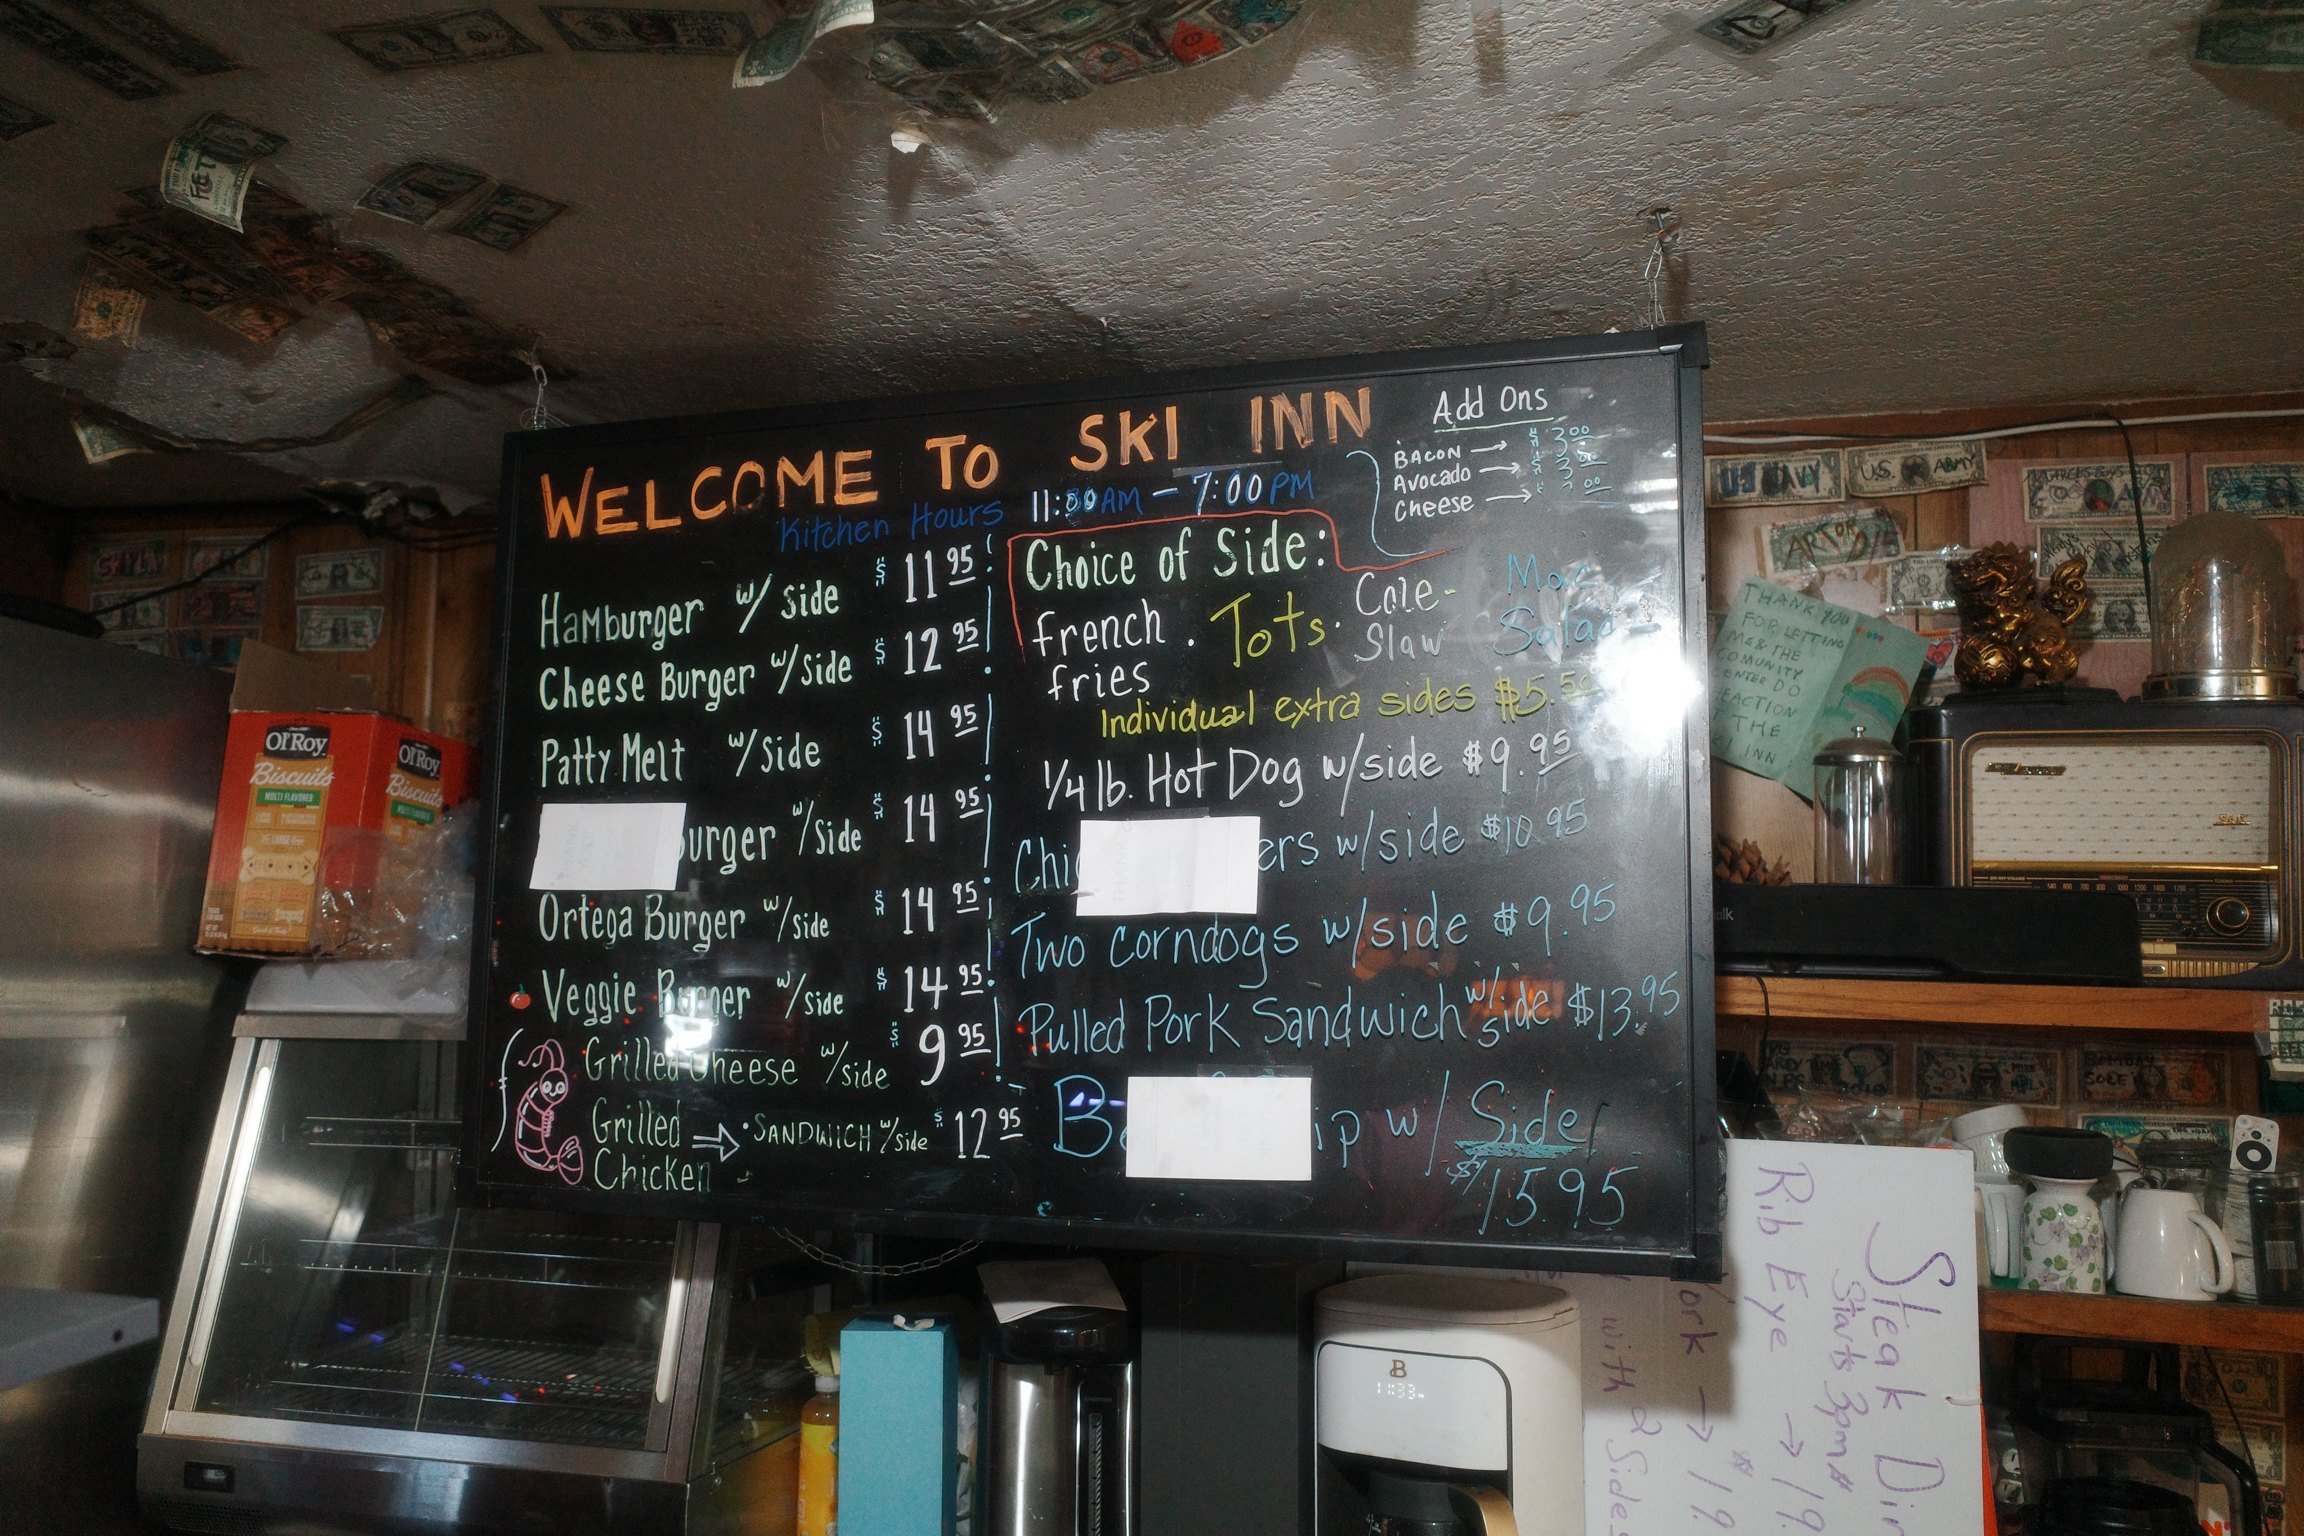 WELCOME TO SKI INN
Kitchen Hours 11:00AM – 7:00PM
Hamburger w/ side $11.95
Cheese Burger w/side $12.95
Patty Melt w/side $14.95
urger w/side $14.95
Ortega Burger w/side $14.95
Veggie Burger w/side $14.95
Grilled Cheese w/side $9.95
Grilled Chicken → SANDWICH w/side $12.95
Add Ons
BACON → $3.00
Avocado → $3.00
Cheese →
Choice of Side:
french fries . Tots . Cole-Slaw
Mac Salad
Individual extra sides $5.50
1/4 lb. Hot Dog w/side $9.95
Chi ers w/side $10.95
Two corndogs w/side $9.95
Pulled Pork Sandwich w/ side $13.95
B ip w/ Side
$15.95
Ol'Roy
Biscuits
MULTI FLAVORED
Ol'Roy
Biscuits
US NAVY
U.S. ARMY
ART OR DIE
THANK YOU
FOR LETTING
ME & THE
COMUNITY
CENTER DO
REACTION
THE
SKI INN
Steak Din
Starts 3pm
Rib Eye → 19.
York → $19.
with 2 Sides
B